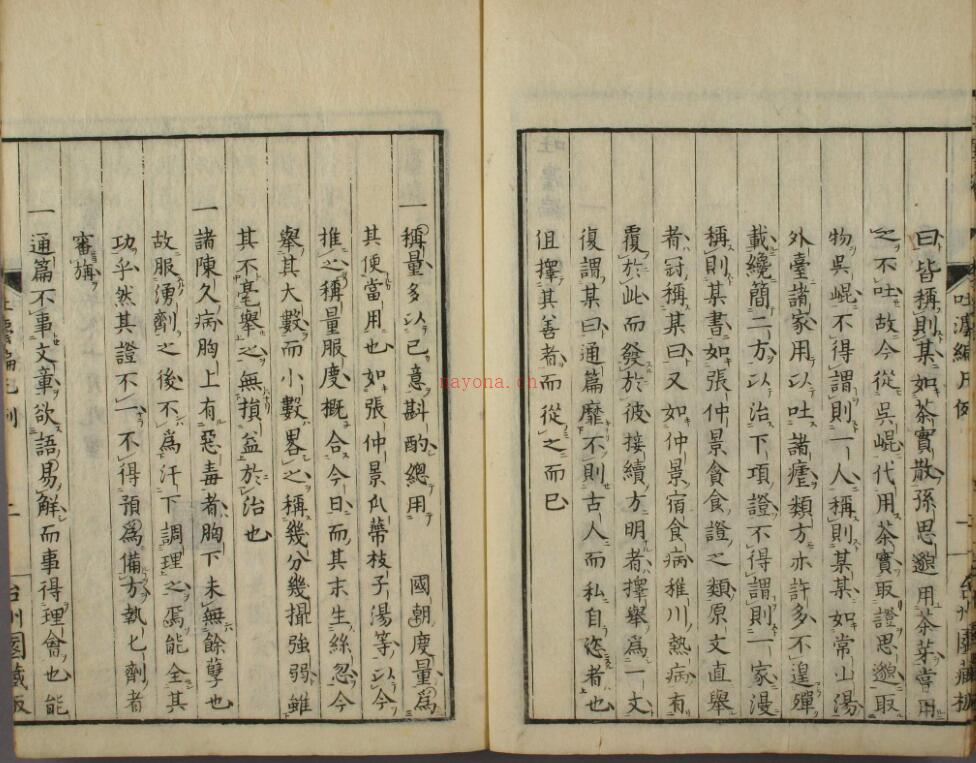 曰皆稱則某如茶實散孫思邈用茶芽嘗用
之不吐故今從吳崐代用茶實取證思邈取
物吳崐不得謂則一人稱則某某如常山湯
外臺諸家用以吐諸瘧類方亦許多不遑殫
載纔簡二方以治下項證不得謂則一家漫
稱則某書如張仲景食食證之類原文直舉
者冠稱某曰又如仲景宿食病稚川熱病有
覆於此而發於彼接續方明者擇舉爲一文
復謂某曰通篇靡不則古人而私自恣者也
但擇其善者而從之而已
一稱量多以已意斟酌總用 國朝度量爲
其便當用也如張仲景瓜蒂枝子湯等以今
推之稱量服度概合今日而其末生絲忽今
舉其大數而小數畧之稱幾分幾撮強弱雖
其不毫舉之無損益於治也
一諸陳久病胸上有惡毒者胸下未無餘孽也
故服湧劑之後不爲汗下調理之焉能全其
功乎然其證不一不得預爲備方執匕劑者
審旃
一通篇不事文章欲語易解而事得理會也能
nayona.cn